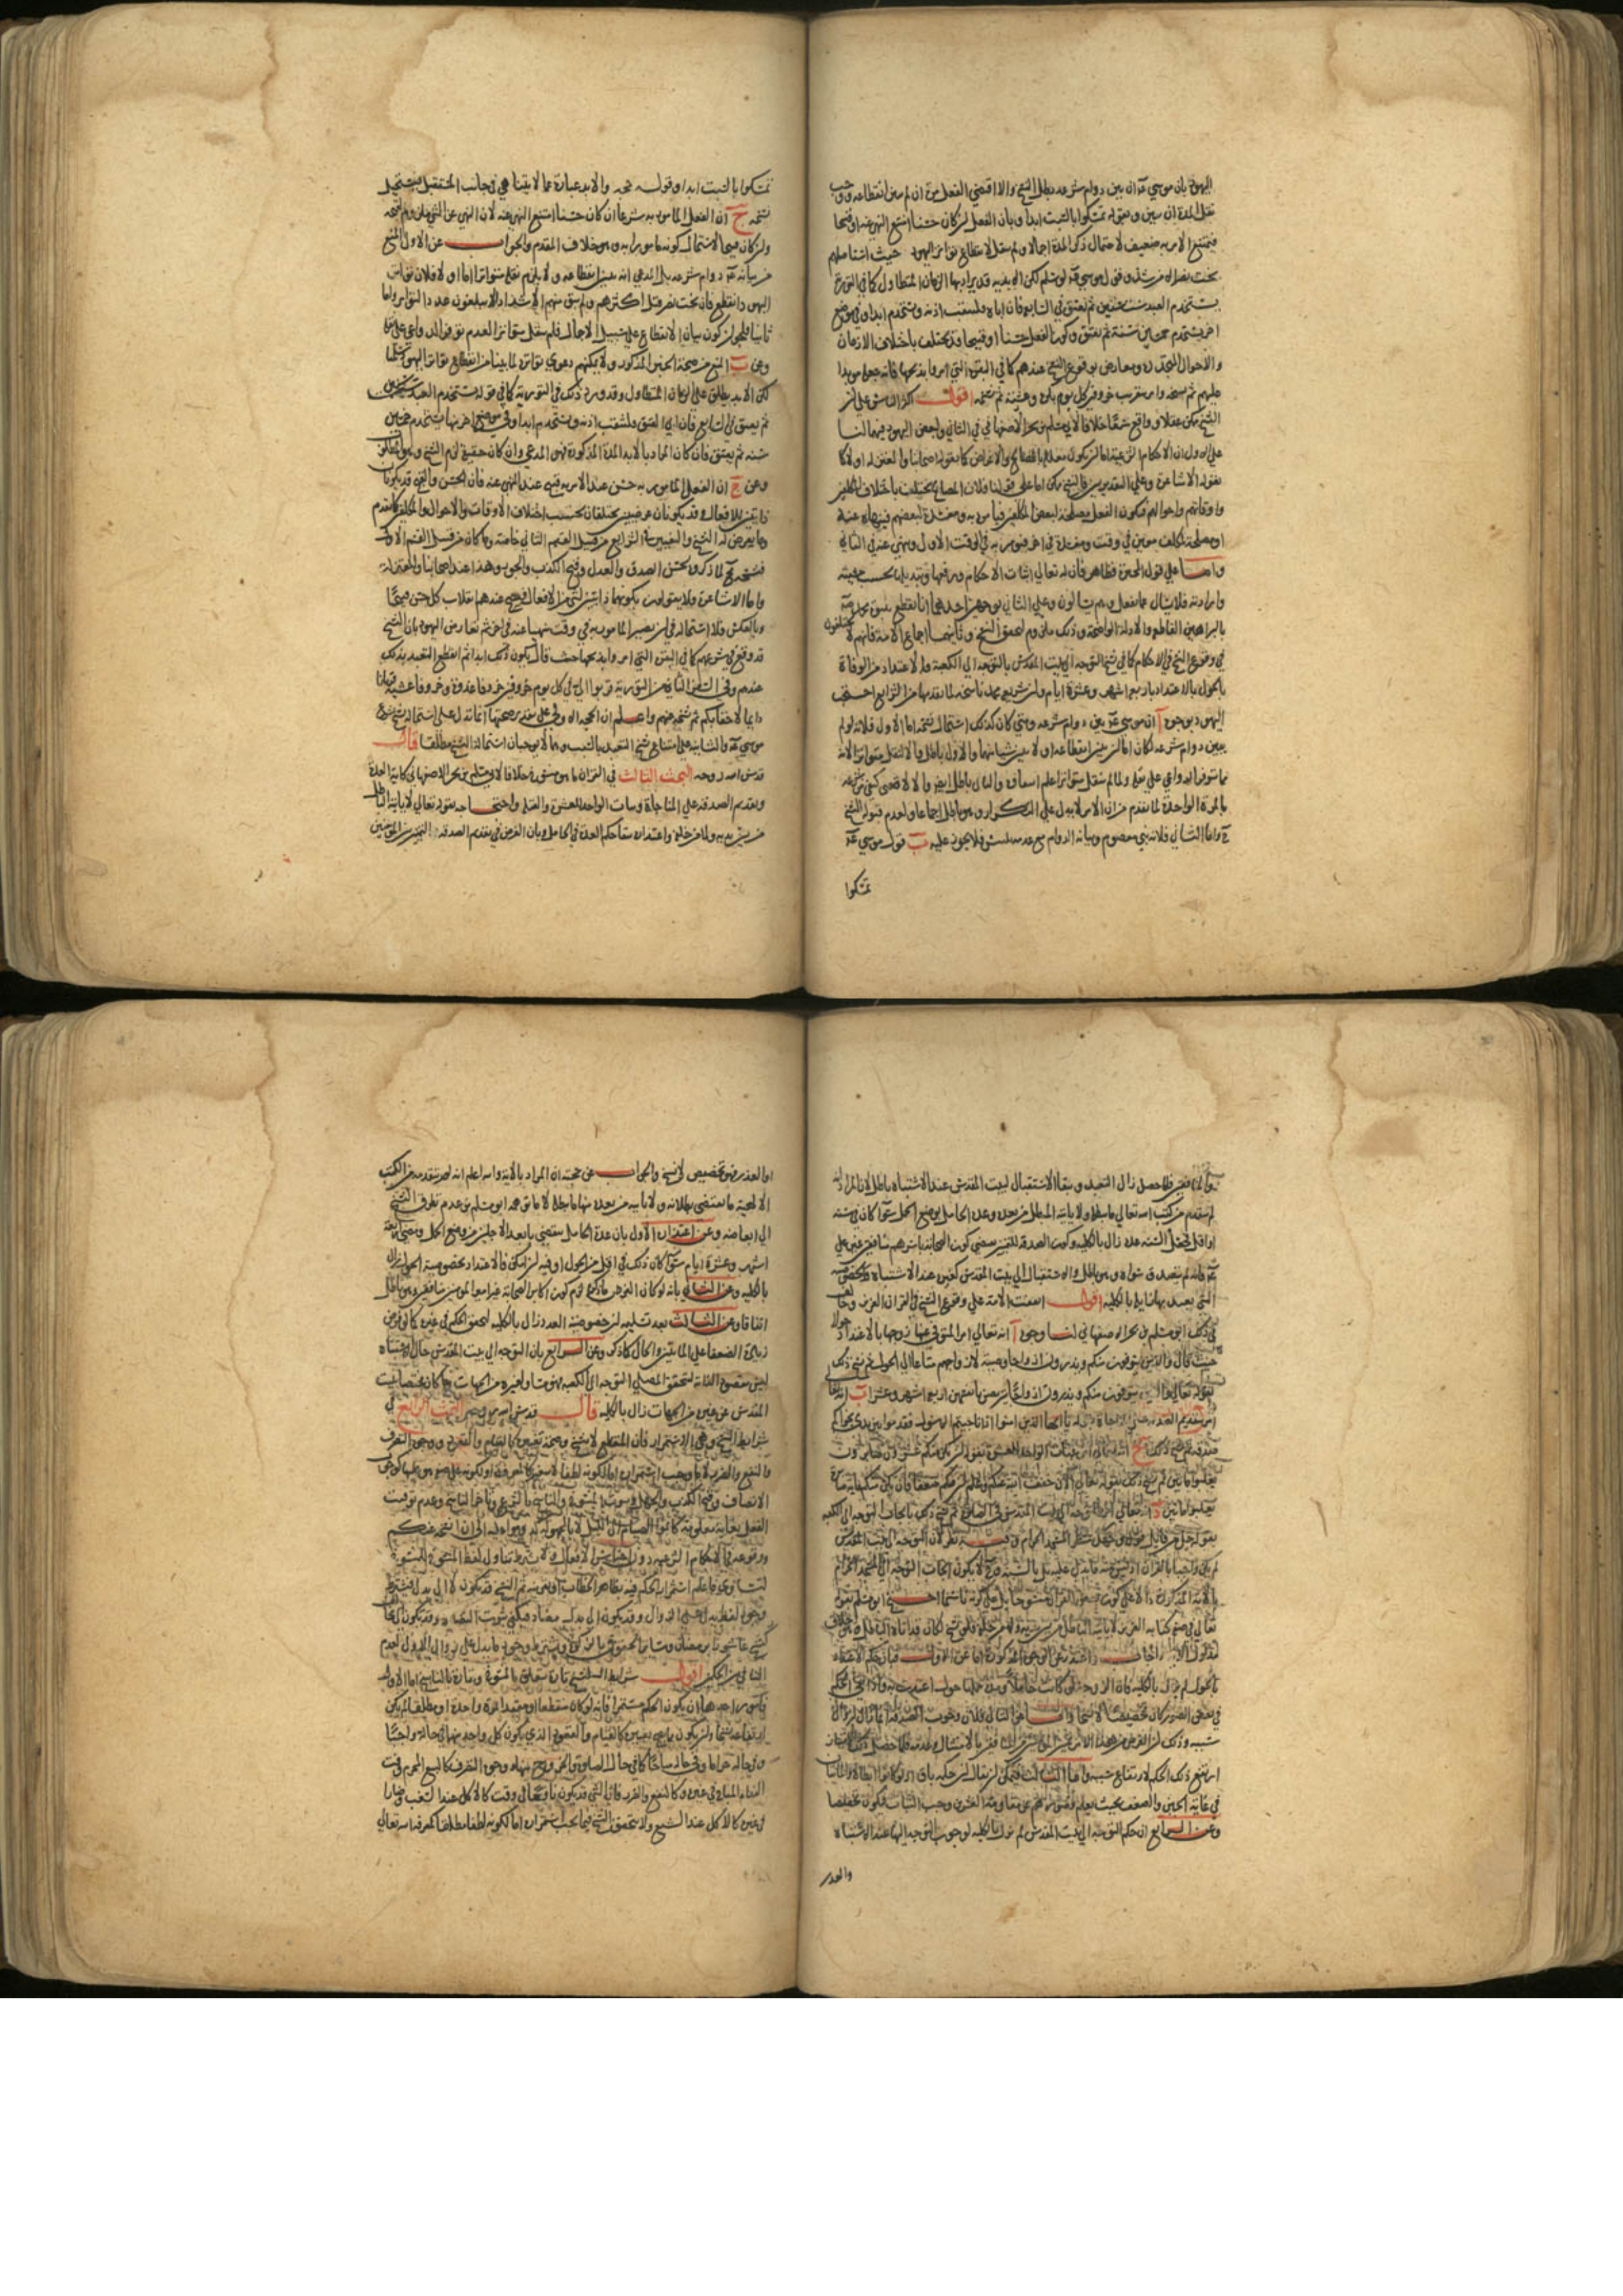 اليهود بان موسى عم ان بين دوام شرعه بطل النسخ والا اقتضى الفعل مرة ان لم يبين انقطاعه ووجب
نقل المدة ان بين وبقوله تمسكوا بالسبت ابدا وبان الفعل ان كان حسنا امتنع النهي عنه او قبيحا
فيمتنع الامر به ضعيف لاحتمال ذكر المدة اجمالا ولم ينقل لانقطاع تواتر اليهود حيث استاصلهم
بخت نصر الا من شذ وقول موسى عم لو سلم لكن الابدية قد يراد بها الزمان المتطاول كما في التورية
يستخدم العبد ست سنين ثم يعتق في السابعة فان اباه فلتثقب اذنه ويستخدم ابدا وفي موضع
اخر يستخدم خمسين سنة ثم يعتق وكون الفعل حسنا او قبيحا قد يختلف باختلاف الازمان
والاحوال المتجددة ومعارض بوقوع النسخ عندهم كما في البقرة التي امروا بذبحها فانه جعله موبدا
عليهم ثم نسخه وامر بتقريب خروفين كل يوم بكرة وعشية ثم نسخه اقول اكثر الناس على ان
النسخ ممكن عقلا وواقع سمعا خلافا لابي مسلم بن بحر الاصفهاني في الثاني ولبعض اليهود فيهما لنا
على الاول ان الاحكام الشرعية اما ان يكون معللة بالمصالح والاغراض كما يقوله اصحابنا والمعتزلة او لا كما
يقوله الاشاعرة وعلى التقديرين فالنسخ ممكن اما على قولنا فلان المصالح يختلف باختلاف المكلفين
واوقاتهم واحوالهم فيكون الفعل مصلحة لبعض المكلفين فيامر به ومفسدة لبعضهم فينهاه عنه
او مصلحة لمكلف معين في وقت ومفسدة في اخر فيومر به في الوقت الاول وينهى عنه في الثاني
واما على قول المجبرة فظاهر فان له تعالى اثبات الاحكام ورفعها وتبديلها بحسب مشيته
وارادته فلا يسال عما يفعل وهم يسالون وعلى الثاني بوجهين احدهما انا نقطع بنبوة محمد صه
بالبراهين القاطعة والادلة الواضحة وذلك ملزوم لتحقق النسخ وثانيهما اجماع الامة فانهم لا يختلفون
في وقوع النسخ في الاحكام كما في نسخ التوجه الى بيت المقدس بالتوجه الى الكعبة والاعتداد من الوفاة
بالحول بالاعتداد باربعة اشهر وعشرة ايام وان شريعة محمد ناسخة لما تقدمها من الشرايع احتج
اليهود بوجوه آ ان موسى عم بين دوام شرعه ومتى كان كذلك استحال نسخه اما الاول فلانه لو لم
يبين دوام شرعه لكان اما ان يبين انقطاعه او لا يبين شيا منهما والاول باطل والا لنقل متواترا لانه
مما تتوفر الدواعي على نقله ولما لم ينقل متواترا علم انتفاؤه والثاني باطل ايضا والا لاقتضى كفى شرعه
بالمرة الواحدة لما تقدم من ان الامر لا يدل على التكرار وهو باطل اجماعا ولعدم قبوله النسخ
ح واما الثاني فلانه نبي معصوم وبيانه الدوام مع عدمه تلبيس فلا يجوز عليه ب قول موسى عم
تمسكوا
تمسكوا بالسبت ابدا وقوله حجة والابد عبارة عما لا يتناهى في جانب المستقبل فيستحيل
نسخه ج ان الفعل المامور به شرعا ان كان حسنا امتنع النهي عنه لان النهي عن الشي ملزوم لقبحه
وان كان قبيحا استحال كونه مامورا به وهو خلاف المقدم والجواب عن الاول المنع
من بيانه عم دوام شرعه بل المدعى انه بين انقطاعه ولا يلزم نقله متواترا اما اولا فلان تواتر
اليهود انقطع فان بخت نصر قتل اكثرهم ولم يبق منهم الا شذاذ لا يبلغون عدد التواتر واما
ثانيا فلجواز كون بيان الانقطاع على سبيل الاجمال فلم ينقل متواترا لعدم توفر الدواعي على نقله
وعن ب المنع من صحة الخبر المذكور ولا يمكنهم دعوى تواتره لما بينا من انقطاع تواتر اليهود سلمنا
لكن الابد يطلق على الزمان المتطاول وقد ورد ذلك في التورية كما في قوله يستخدم العبد ست سنين
ثم يعتق في السابعة فان ابى العتق فلتثقب اذنه ويستخدم ابدا وفي موضع اخر منها يستخدم خمسين
سنة ثم يعتق فان كان المراد بالابد المدة المذكورة فهو المدعى وان كان حقيقة لزم النسخ وهو المطلوب
وعن ج ان الفعل المامور به حسن عند الامر به قبيح عند النهي عنه فان الحسن والقبح قد يكونان
ذاتيين للافعال وقد يكونان عرضيين يختلفان بحسب اختلاف الاوقات والاحوال والمكلفين كما تقدم
وما يعرض له النسخ والتغيير في الشرايع من قبيل القسم الثاني خاصة وما كان من قبيل القسم الاول
فنسخه محال كما ذكروه كحسن الصدق والعدل وقبح الكذب والجور وهذا عند اصحابنا والمعتزلة
واما الاشاعرة فلا يقولون بكونهما ذاتيين لشي من الافعال فيصح عندهم انقلاب كل حسن قبيحا
وبالعكس فلا استحالة في ان يصير المامور به في وقت منهيا عنه في اخر ثم نعارض اليهود بان النسخ
قد وقع في شرعهم كما في البقرة التي امروا بذبحها حيث قال يكون ذلك ابدا ثم انقطع التعبد بذلك
عندهم وفي السفر الثاني من التورية قربوا الي في كل يوم خروفين خروفا غدوة وخروفا عشية قربانا
دايما لاحقابكم ثم نسخه عنهم واعلم ان الحجة الاولى على تقدير صحتها انما تدل على استحالة نسخ شرع
موسى عم والثانية على امتناع نسخ التعبد بالسبت وهما لا يوجبان استحالة النسخ مطلقا قال
قدس الله روحه البحث الثالث في القران ما هو منسوخ خلافا لابي مسلم بن بحر الاصفهاني كاية العدة
وتقديم الصدقة على المناجاة وثبات الواحد للعشرة والقبلة واحتجاجه بقوله تعالى لا ياتيه الباطل
من بين يديه ولا من خلفه واعتذاره ببقا حكم العدة في الحامل وبان الغرض في تقديم الصدقة التمييز بين المومنين
فقد حصل زال التعبد وبقا الاستقبال لبيت المقدس عند الاشتباه باطل لان المراد انه
لم يتقدم من كتب الله تعالى ما يبطله ولا ياتيه المبطل من بعده وعدة الحامل بوضع الحمل سوا كان في سنة
او اقل فجعل السنة عدة زال بالكلية وكون الصدقة للتمييز يقتضي كون الصحابة باسرهم منافقين غير علي
عم فانه لم يتصدق سواه وهو باطل والاستقبال الى بيت المقدس كغيره عند الاشتباه
اقول اتفقت الامة على وقوع النسخ في القران العزيز وخالف
في ذلك ابو مسلم بن بحر الاصفهاني لنا وجوه آ انه تعالى امر المتوفى عنها زوجها بالاعتداد حولا
حيث قال والذين يتوفون منكم ويذرون ازواجا وصية لازواجهم متاعا الى الحول ثم نسخ ذلك
بقوله تعالى والذين يتوفون منكم ويذرون ازواجا يتربصن بانفسهن اربعة اشهر وعشرا ب انه تعالى
امر بتقديم الصدقة يا ايها الذين امنوا اذا ناجيتم الرسول فقدموا بين يدي نجواكم
صدقة ثم نسخ ذلك ج بثبات الواحد للعشرة بقوله ان يكن منكم عشرون صابرون
يغلبوا مايتين ثم نسخ ذلك بقوله تعالى الان خفف الله عنكم وعلم ان فيكم ضعفا فان يكن منكم ماية صابرة
يغلبوا مايتين د تعالى امر بالتوجه الى بيت المقدس في الصلاة ثم نسخ ذلك بايجاب التوجه الى الكعبة
بقوله فول وجهك شطر المسجد الحرام وفيه نظر لان التوجه الى بيت المقدس
لم يكن واجبا بالقران اذ ليس فيه ما يدل عليه بل بالسنة فلا يكون ايجاب التوجه الى المسجد الحرام
احتج ابو مسلم بقوله
تعالى في صفة كتابه العزيز لا ياتيه الباطل من بين يديه ولا من خلفه فلو نسخ لكان قد اتاه الباطل
عن الوجوه المذكورة اما عن الاول فبان حكم الاعتداد
بالحول لم يزل بالكلية فان الزوجة لو كانت حاملا ومدة حملها حول اعتدت به
في بعض الصور كان تخصيصا لا نسخا واما عن الثاني فلان وجوب الصدقة انما زال لزوال
سببه وذلك ان الغرض من هذا الامر تمييز المومنين من المنافقين بالامتثال وعدمه فلما حصل
ارتفع ذلك الحكم لارتفاع سببه واما الثالث فيمكن ان يقال ان حكمه باق
في غاية الجبن والضعف بحيث يعلم قصورهم عن مقاومة العشرين وجب الثبات فيكون تخصيصا
وعن الرابع ان حكم التوجه الى بيت المقدس لم يزل بالكلية لوجوب التوجه اليها عند الاشتباه
والعذر
او العذر فهو تخصيص لا نسخ والجواب عن حجته ان المراد بالاية والله اعلم انه لم يتقدمه من الكتب
الالهية ما يقتضي بطلانه ولا ياتيه من بعده منها ما يبطله لا ما توهمه ابو مسلم من عدم تطرق النسخ
الى ابعاضه وعن اعتذاره الاول بان عدة الحامل ينقضي بابعد الاجلين من وضع الحمل ومضي اربعة
اشهر وعشرة ايام سوا كان ذلك في اقل من الحول او فيه ان امكن فالاعتداد بخصوصية الحول زال
بالكلية وعن الثاني بانه لو كان الغرض ما ذكر لزم كون اكابر الصحابة غير امير المومنين منافقين وهو باطل
اتفاقا وعن الثالث بعد تسليمه ان خصوصية العدد زال بالكلية لتحقق الحكم في غيره كما لو فرض
زيادة الضعفا على المايتين والحال كما ذكر وعن الرابع بان التوجه الى بيت المقدس حال الاشتباه
ليس مقصودا لذاته لتحقق المصلي التوجه الى الكعبة بل هو ولغيره من الجهات
المقدس عن غيره من الجهات زال بالكلية قال قدس الله روحه البحث الرابع في
شرايط النسخ وهي الاستمرار فان المنقطع لا ينسخ وصحة تغييره كالقيام والقعود ووجوه التصرف
كالنفع والضرر لا ما وجب استمراره اما لكونه لطفا لا يتغير كالمعرفة او لكونه على صفة هو عليها كوجوب
الانصاف وقبح الكذب والجهل وثبوت المنسوخ والناسخ بالشرع وتاخر الناسخ وعدم توقيت
الفعل بغاية معلومة كاتموا الصيام الى الليل لا بالمجهولة كدوموا عليه الى ان انسخه عنكم
ووقوعه في الاحكام الشرعية دون اجناس الافعال ولا يشترط تناول لفظ المنسوخ
اقول شرايط النسخ تارة يتعلق بالمنسوخ وتارة بالناسخ اما الاول
فامور احدها ان يكون الحكم مستمرا فانه لو كان منقطعا او مقيدا بمرة واحدة او مطلقا لم يكن
ارتفاعه نسخا وان يكون مما يصح تغييره كالقيام والقعود الذي يكون كل واحد منهما في حالة واجبا
وفي حالة حراما وفي حالة مباحا كما في حال الصلوة والخروج منها ووجوه التصرف كالبيع المحرم وقت
النداء المباح في غيره وكالنفع والضرر فان الشي قد يكون نافعا في وقت كالاكل عند السغب وضارا
في غيره كالاكل عند الشبع ولا يتحقق النسخ فيما يجب استمراره اما لكونه لطفا مطلقا كمعرفة الله تعالى